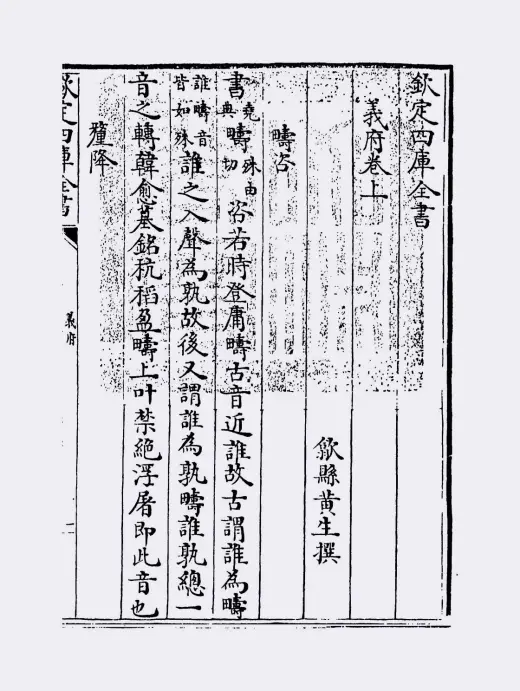 欽定四庫全書
義府卷上
歙縣黄生撰
疇咨
書堯典疇殊由切咨若時登庸疇古音近誰故古謂誰為疇
誰疇音皆如殊誰之入聲為孰故後又謂誰為孰疇誰孰總一
音之轉韓愈墓銘秔稻盈疇上叶禁絶浮屠即此音也
釐降
欽定四庫全書
義府